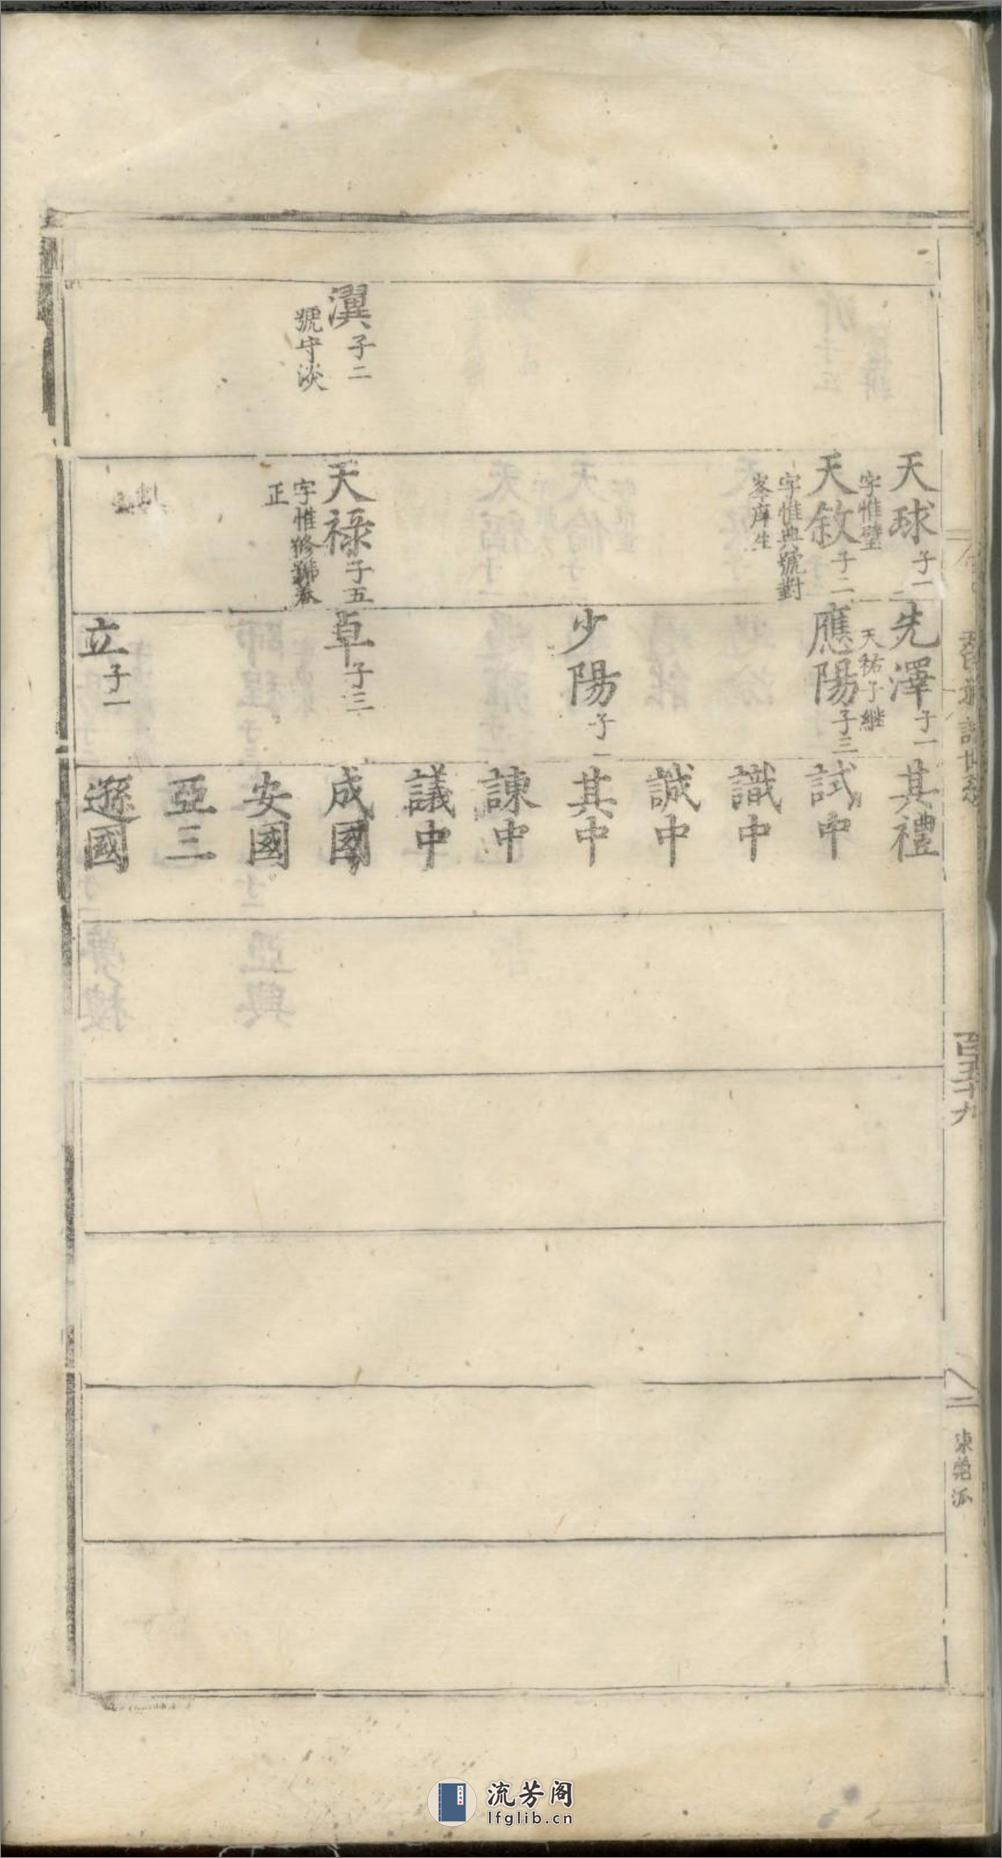 瀷子二
號守淡
天球子一
字惟璧
天敘子二
字惟典號對
峯庠生
天祿子五
字惟修號春
正
先澤子一
天祐子繼
應陽子三
少陽子一
卓子三
立子一
其禮
試中
識中
誠中
其中
諫中
議中
成國
安國
亞三
遜國
百五十九
二
東莞派
流芳阁
lfglib.cn